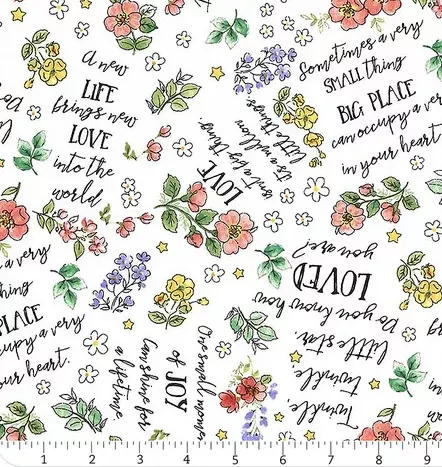 A new
LIFE
brings new
LOVE
into the
world.
Sometimes a very
SMALL thing
BIG PLACE
can occupy a ve
in your heart.
LOVE
isn't a big thing.
It's a million
little things.
a very
hing
PLACE
cupy a very
ur heart.
Twinkle,
twinkle,
little star.
Do you know how
LOVED
you are?
One small momen
of JOY
can shine for
a lifetime.
1 2 3 4 5 6 7 8 9